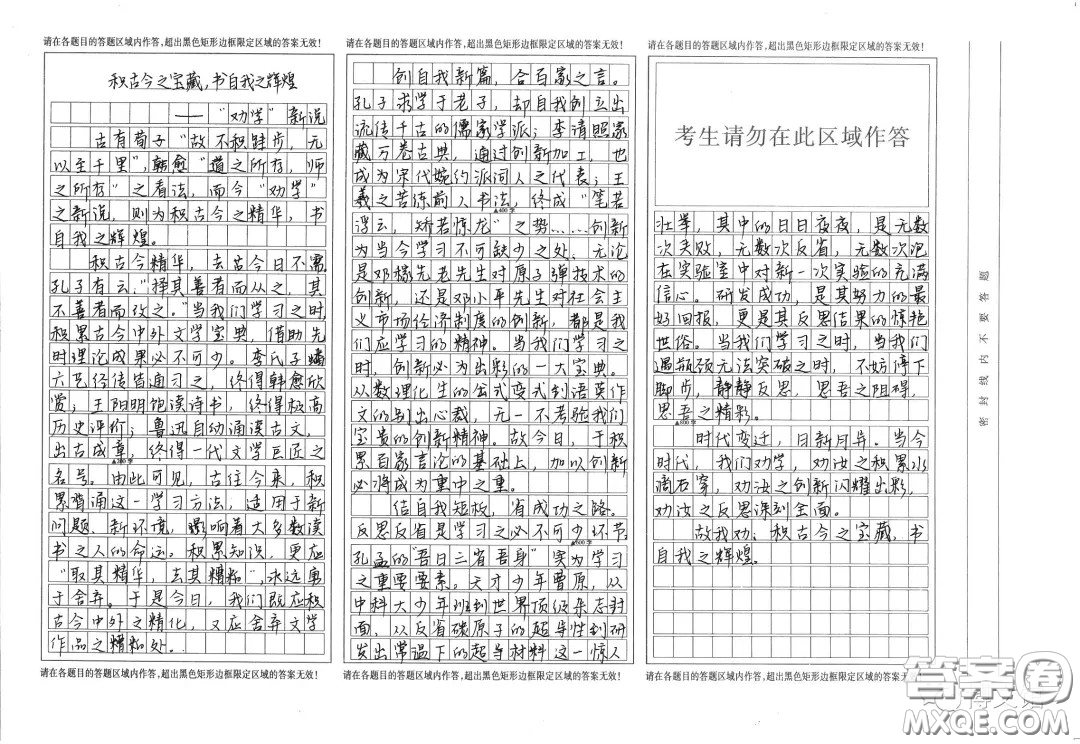 请在各题目的答题区域内作答,超出黑色矩形边框限定区域的答案无效!
积古今之宝藏,书自我之辉煌
——“劝学”新说
古有荀子“故不积跬步,无
以至千里”,韩愈“道之所存,师
之所存”之看法,而今“劝学”
之新说,则为积古今之精华,书
自我之辉煌。
积古今精华,去古今日不需
孔子有云:“择其善者而从之,其
不善者而改之。”当我们学习之时,
积累古今中外文学宝典,借助先
时理论成果必不可少。李氏子蟠
六艺经传皆通习之,终得韩愈欣
赏;王阳明饱读诗书,终得极高
历史评价;鲁迅自幼诵读古文,
出古成章,终得一代文学巨匠之
▲200字
名号。由此可见,古往今来,积
累背诵这一学习方法,适用于新
问题、新环境,影响着大多数读
书之人的命运。积累知识,更应
“取其精华,去其糟粕”,永远勇
于舍弃。于是今日,我们既应积
古今中外之精化,又应舍弃文学
作品之糟粕处。
请在各题目的答题区域内作答,超出黑色矩形边框限定区域的答案无效!
请在各题目的答题区域内作答,超出黑色矩形边框限定区域的答案无效!
创自我新篇,合百家之言。
孔子求学于老子,却自我创立出
流传千古的儒家学派;李清照家
藏万卷古典,通过创新加工,也
成为宋代婉约派词人之代表;王
羲之苦练前人书法,终成“笔若
▲400字
浮云,矫若惊龙”之势……创新
为当今学习不可缺少之处,无论
是邓稼先老先生对原子弹技术的
创新,还是邓小平先生对社会主
义市场经济制度的创新,都是我
们应学习的精神。当我们学习之
时,创新必为出彩的一大宝典。
从数理化生的公式变式到语英作
文的别出心裁,无一不考验我们
宝贵的创新精神。故今日,于积
累百家言论的基础上,加以创新
必将成为重中之重。
结自我短板,省成功之路。
反思反省是学习之必不可少环节,
▲600字
孔孟的“吾日三省吾身”实为学习
之重要要素。天才少年曹原,从
中科大少年班到世界顶级杂志封
面,从反省碳原子的超导性到研
发出常温下的超导材料这一惊人
请在各题目的答题区域内作答,超出黑色矩形边框限定区域的答案无效!
请在各题目的答题区域内作答,超出黑色矩形边框限定区域的答案无效!
考生请勿在此区域作答
壮举,其中的日日夜夜,是无数
次失败,无数次反省,无数次泡
在实验室中对新一次实验的充满
信心。研发成功,是其努力的最
好回报,更是其反思结果的惊艳
世俗。当我们学习之时,当我们
遇瓶颈无法突破之时,不妨停下
脚步,静静反思,思吾之阻碍,
思吾之精彩。
▲800字
时代变迁,日新月异。当今
时代,我们劝学,劝汝之积累水
滴石穿,劝汝之创新闪耀出彩,
劝汝之反思深刻全面。
故我劝:积古今之宝藏,书
自我之辉煌。
请在各题目的答题区域内作答,超出黑色矩形边框限定区域的答案无效!
密封线内不要答题
答案圈
MXQE.COM